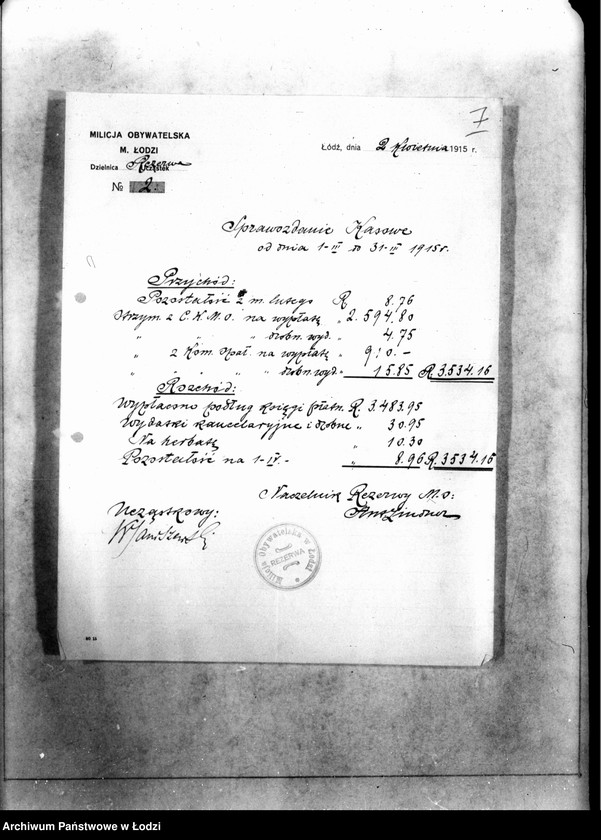 7
MILICJA OBYWATELSKA
M. ŁODZI
Dzielnica Rezerwa
№ 2.
Łódź, dnia 2 Kwietnia 1915 r.
Sprawozdanie Kasowe
od dnia 1-III do 31-III 1915 r.
Przychód:
Pozostałość z m. lutego R 8.76
Otrzym. z C.K.M.O. na wypłatę " 2.594.80
" " " drobn. wyd. " 4.75
" z Kom. Opał. na wypłatę " 910.-
" " " " drobn. wyd. " 15.85 R. 3.534.16
Rozchód:
Wypłacono podług księgi płatn. R. 3.483.95
Wydatki kancelaryjne i drobne " 30.95
Na herbatę " 10.30
Pozostałość na 1-IV.- " 8.96 R. 3534.16
Naczelnik Rezerwy M.O:
Ucząstkowy:
Milicja Obywatelska w Łodzi
REZERWA
Archiwum Państwowe w Łodzi